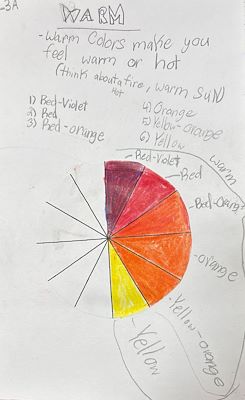 3A
WARM
-Warm Colors make you
feel warm or hot
(think about a fire, warm sun)
Hot
1) Red-Violet
2) Red
3) Red-orange
4) Orange
5) Yellow-orange
6) Yellow
Red-Violet
-Red
-Red-Orange
warm
-orange
-Yellow-orange
-Yellow